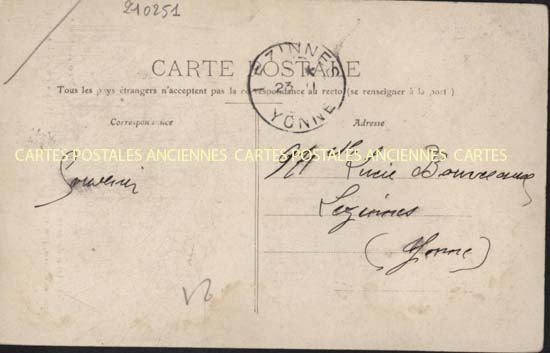 210251
CARTE POSTALE
Tous les pays étrangers n'acceptent pas la correspondance au recto (se renseigner à la poste)
LEZINNES
23
YONNE
Correspondance
Adresse
CARTES POSTALES ANCIENNES CARTES POSTALES ANCIENNES CARTES
Souvenir
Lucie
Lezinnes
(Yonne)